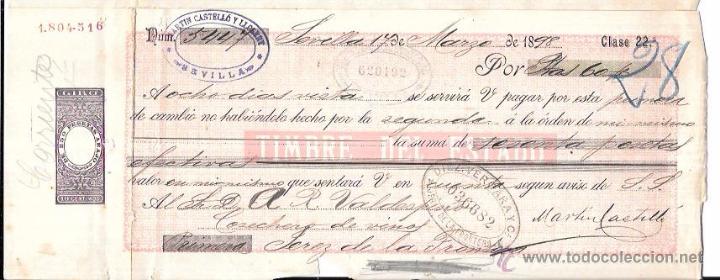 1.804-516
MARTIN CASTELLÓ Y LLORENT
SEVILLA
Núm. 5447 Sevilla 17 de Marzo de 1898 Clase 22ª
Por Ptas 60
28
620192
A ocho dias vista se servirá V pagar por esta primera
de cambio no habiéndolo hecho por la segunda á la órden de mi mismo
la suma de sesenta pesetas
TIMBRE DEL ESTADO
efectivas
valor en mi mismo que sentará V en cuenta segun aviso de S. S.
Al Sr. D. A. R. Valdespino
36682
Martin Castelló
de vinos
Primera Jerez de la Frontera
todocoleccion.net